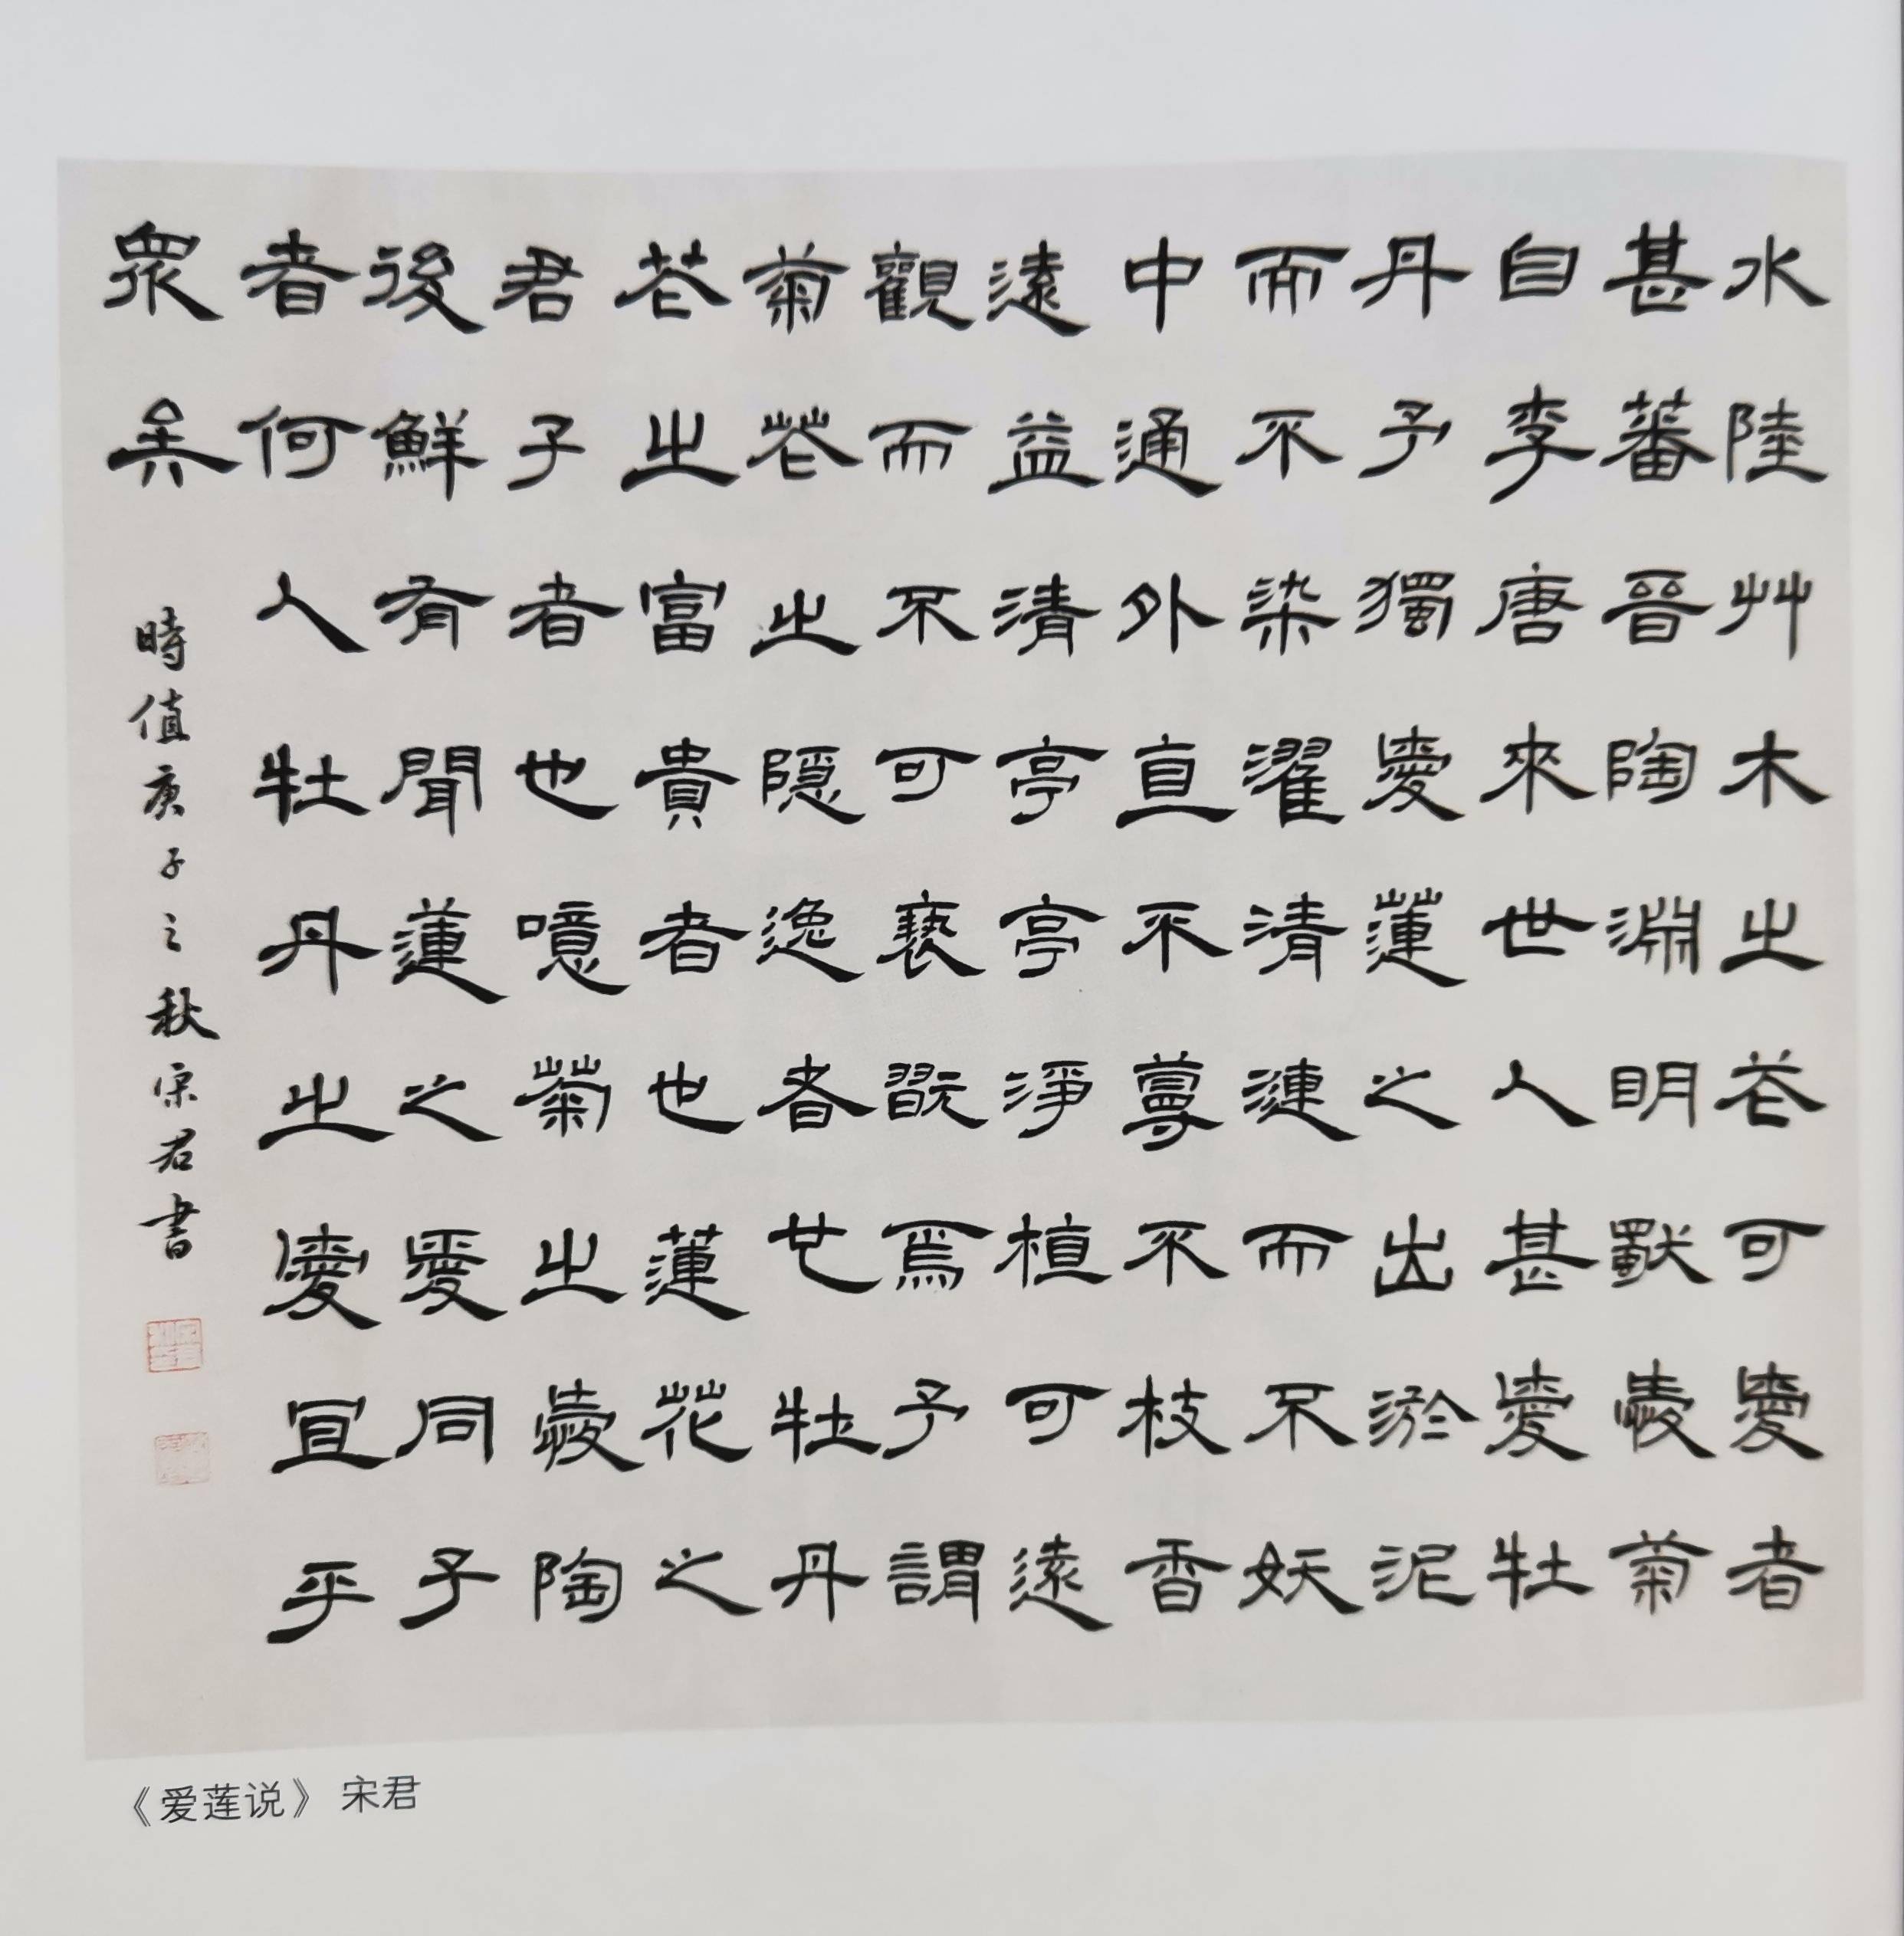 水陸艸木之花可愛者
甚蕃晉陶淵明獨愛菊
自李唐來世人甚愛牡
丹予獨愛蓮之出淤泥
而不染濯清漣而不妖
中通外直不蔓不枝香
遠益清亭亭淨植可遠
觀而不可褻翫焉予謂
菊花之隱逸者也牡丹
花之富貴者也蓮花之
君子者也噫菊之愛陶
後鮮有聞蓮之愛同予
者何人牡丹之愛宜乎
眾矣
時值庚子之秋宋君書
《爱莲说》 宋君